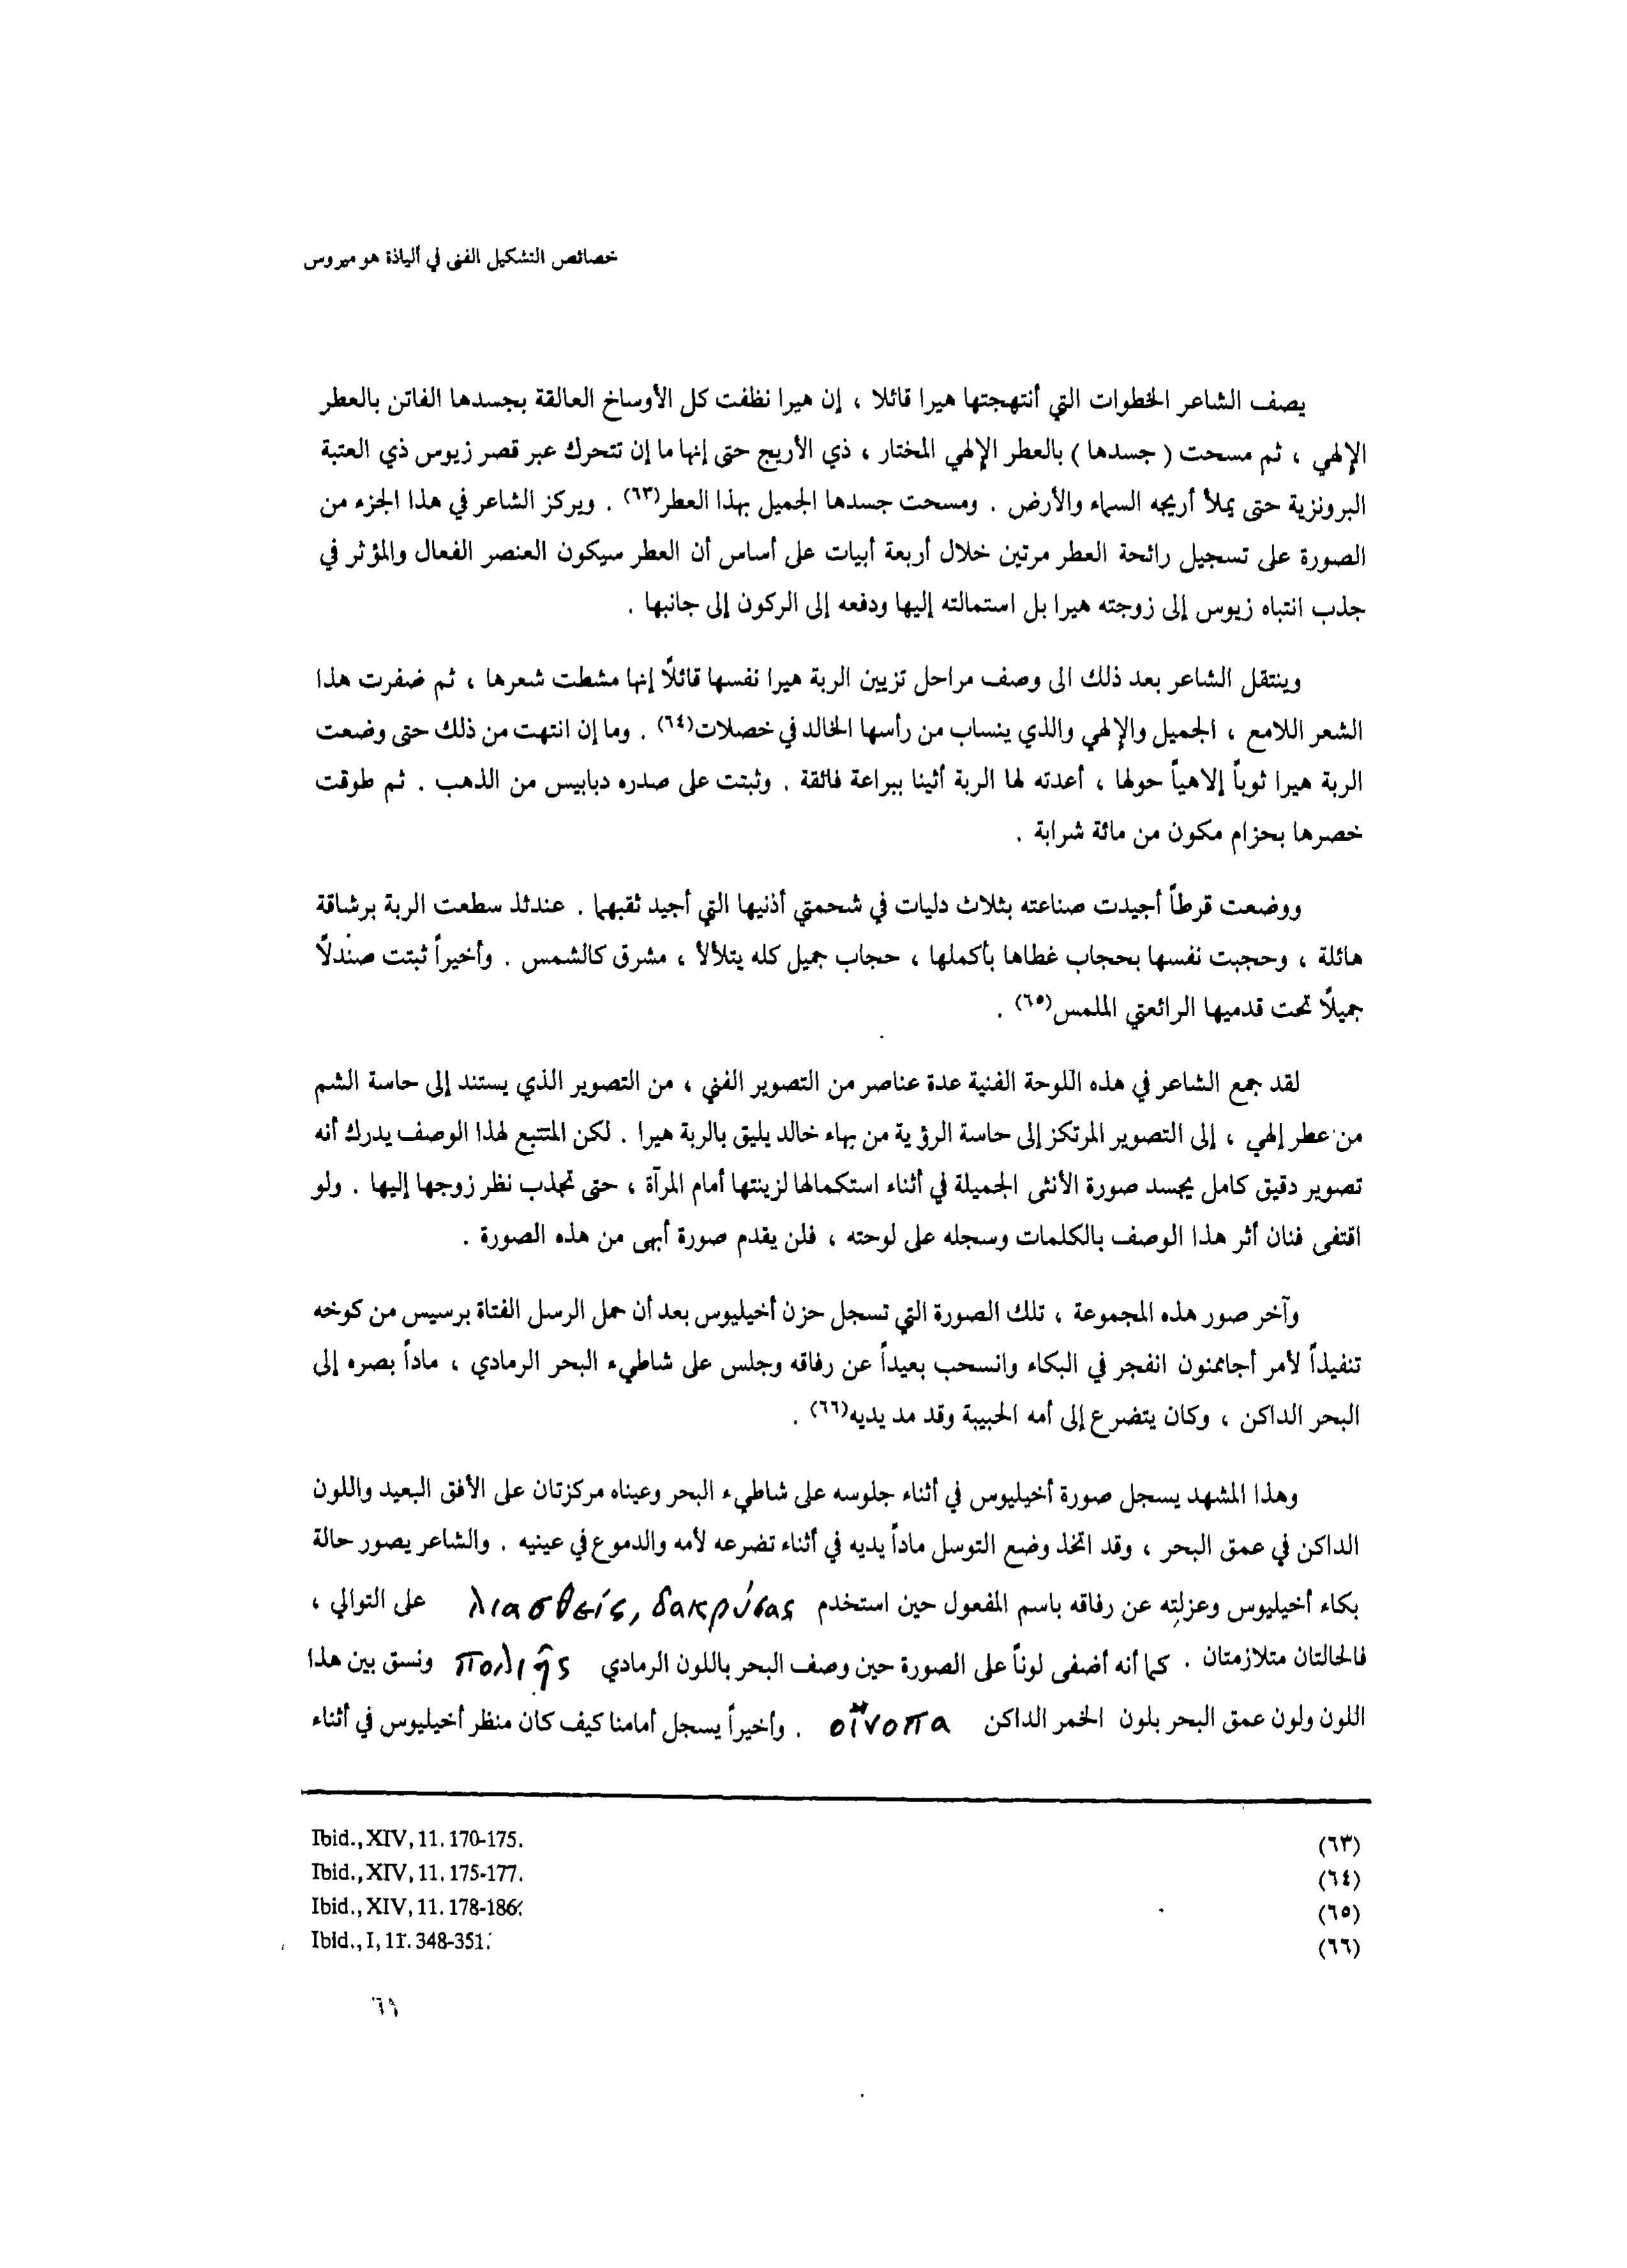 خصائص التشكيل الفنى في ألياذة هوميروس
يصف الشاعر الخطوات التي أنتهجتها هيرا قائلا ، إن هيرا نظفت كل الأوساخ العالقة بجسدها الفاتن بالعطر
الإلهي ، ثم مسحت ( جسدها ) بالعطر الإلهي المختار ، ذي الأريج حتى إنها ما إن تتحرك عبر قصر زيوس ذي العتبة
البرونزية حتى يملأ أريجه السماء والأرض . ومسحت جسدها الجميل بهذا العطر(٦٣) . ويركز الشاعر في هذا الجزء من
الصورة على تسجيل رائحة العطر مرتين خلال أربعة أبيات على أساس أن العطر سيكون العنصر الفعال والمؤثر في
جذب انتباه زيوس إلى زوجته هيرا بل استمالته إليها ودفعه إلى الركون إلى جانبها .
وينتقل الشاعر بعد ذلك الى وصف مراحل تزيين الربة هيرا نفسها قائلاً إنها مشطت شعرها ، ثم ضفرت هذا
الشعر اللامع ، الجميل والإلهي والذي ينساب من رأسها الخالد في خصلات(٦٤) . وما إن انتهت من ذلك حتى وضعت
الربة هيرا ثوباً إلاهياً حولها ، أعدته لها الربة أثينا ببراعة فائقة . وثبتت على صدره دبابيس من الذهب . ثم طوقت
خصرها بحزام مكون من مائة شرابة .
ووضعت قرطاً أجيدت صناعته بثلاث دليات في شحمتي أذنيها التي أجيد ثقبهما . عندئذ سطعت الربة برشاقة
هائلة ، وحجبت نفسها بحجاب غطاها بأكملها ، حجاب جميل كله يتلألأ ، مشرق كالشمس . وأخيراً ثبتت صندلاً
جميلاً تحت قدميها الرائعتي الملمس(٦٥) .
لقد جمع الشاعر في هذه اللوحة الفنية عدة عناصر من التصوير الفني ، من التصوير الذي يستند إلى حاسة الشم
من عطر إلهي ، إلى التصوير المرتكز إلى حاسة الرؤية من بهاء خالد يليق بالربة هيرا . لكن المتتبع لهذا الوصف يدرك أنه
تصوير دقيق كامل يجسد صورة الأنثى الجميلة في أثناء استكمالها لزينتها أمام المرآة ، حتى تجذب نظر زوجها إليها . ولو
اقتفى فنان أثر هذا الوصف بالكلمات وسجله على لوحته ، فلن يقدم صورة أبهى من هذه الصورة .
وآخر صور هذه المجموعة ، تلك الصورة التي تسجل حزن أخيليوس بعد أن حمل الرسل الفتاة برسيس من كوخه
تنفيذاً لأمر أجاممنون انفجر في البكاء وانسحب بعيداً عن رفاقه وجلس على شاطيء البحر الرمادي ، ماداً بصره إلى
البحر الداكن ، وكان يتضرع إلى أمه الحبيبة وقد مد يديه(٦٦) .
وهذا المشهد يسجل صورة أخيليوس في أثناء جلوسه على شاطيء البحر وعيناه مركزتان على الأفق البعيد واللون
الداكن في عمق البحر ، وقد اتخذ وضع التوسل ماداً يديه في أثناء تضرعه لأمه والدموع في عينيه . والشاعر يصور حالة
بكاء أخيليوس وعزلته عن رفاقه باسم المفعول حين استخدم λιασθείς, δακρύσας على التوالي ،
فالحالتان متلازمتان . كما أنه أضفى لوناً على الصورة حين وصف البحر باللون الرمادي πολιῆς ونسق بين هذا
اللون ولون عمق البحر بلون الخمر الداكن οἴνοπα . وأخيراً يسجل أمامنا كيف كان منظر أخيليوس في أثناء
(٦٣) Ibid., XIV, 11. 170-175.
(٦٤) Ibid., XIV, 11. 175-177.
(٦٥) Ibid., XIV, 11. 178-186.
(٦٦) Ibid., I, 11. 348-351.